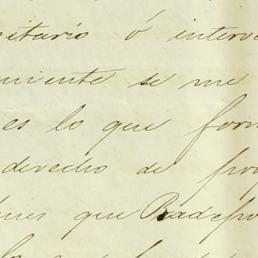 itario ó interv
niente se me
es lo que for
derecho de pro
que Badef